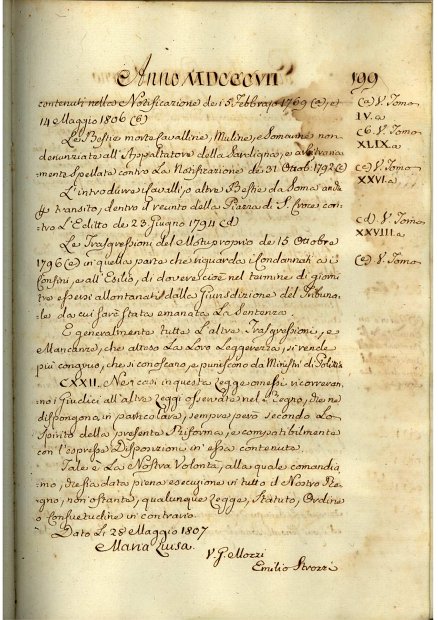 Anno MDCCCVII 199
contenuti nella Notificazione de 15 Febbrajo 1769 (a), et (a) V. Tomo
14 Maggio 1806 (b) IV. a
Le Bestie morte Cavalline, Muline, e Somarine non (b. V. Tomo
denunziate all'Appaltatore della Sardigna, e arbitraria XLIX. a
mente spellate contro La Notificazione de 31 Ottob. 1792 (c) (c) V. Tomo
L'introdurre i Cavalli, o altre Bestie da Soma anche XXVI. a
transito, dentro il recinto della Piazza di S. Croce con
tro L'Editto de 23 Giugno 1794 (d) (d). V. Tomo
Le Trasgressioni del Motuproprio de 15 Ottobre XXVIII. a
1796 (e) in quella parte che riguarda i Condannati ai (e) V. Tomo
Confini, e all'Esilio, di dovere cioè nel termine di giorni
tre essersi allontanati dalla Giurisdizione del Tribuna-
le da cui sarà stata emanata La Sentenza.
E generalmente tutte L'altre Trasgressioni, e
Mancanze, che atteso La Loro Leggerezza, si rende
più congruo, che si conoscano, e puniscono da Ministri di Polizia
CXXII. Ne casi in questa Legge omessi ricorreran-
no i Giudici all'altre Leggi osservate nel Regno, che ne
dispongono in particolare, sempre però secondo Lo
Spirito della presente Riforma, e compatibilmente
con l'espresse Disposizioni in essa contenute.
Tale è La Nostra Volontà, alla quale comandia-
mo, che sia data piena esecuzione in tutto il Nostro Re-
gno, non ostante, qualunque Legge, Statuto, Ordine
o Consuetudine in contrario
Dato Li 28 Maggio 1807
Maria Luisa.
V. G. Mozzi
Emilio Strozzi